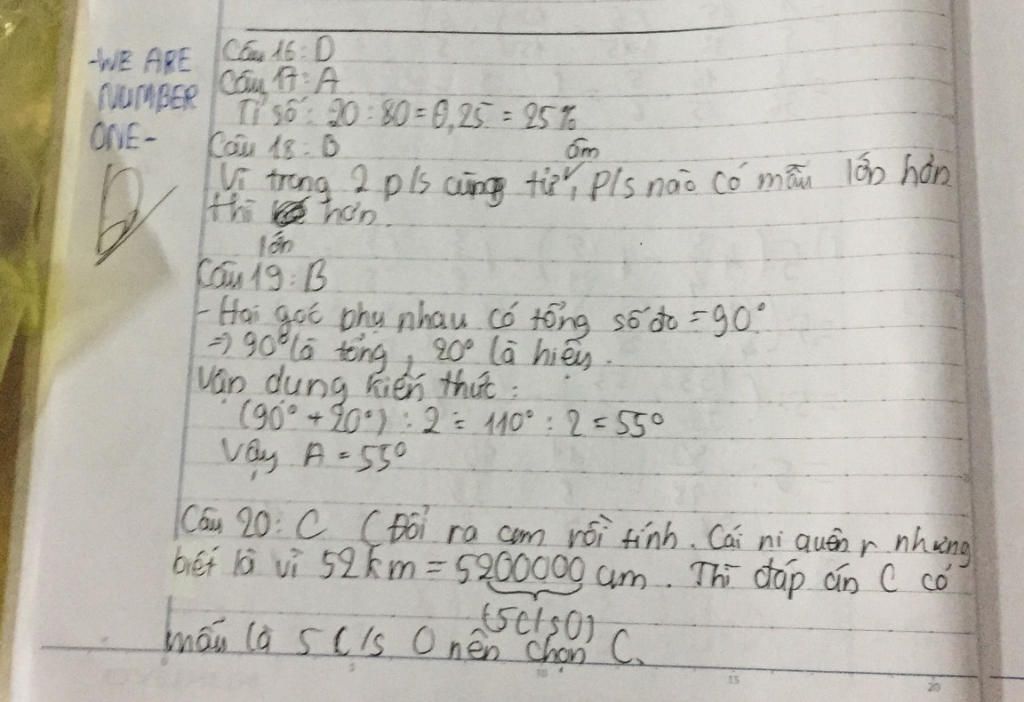 -WE ARE
NUMBER
ONE-
Câu 16: D
Câu 17: A
Tỉ số: 20 : 80 = 0,25 = 25%
Câu 18: B
Vì trong 2 p/s cùng tử, p/s nào có mẫu lớn hơn
âm
thì hơn.
lớn
Câu 19: B
- Hai góc phụ nhau có tổng số đo = 90°.
=> 90° là tổng, 20° là hiệu.
Vận dụng kiến thức:
(90° + 20°) : 2 = 110° : 2 = 55°
Vậy A = 55°
Câu 20: C (Đổi ra cm rồi tính. Cái ni quên r nhưng
biết là vì 52km = 5200000 cm. Thì đáp án C có
(5 c/s 0)
mẫu là 5 c/s 0 nên chọn C.
15
20